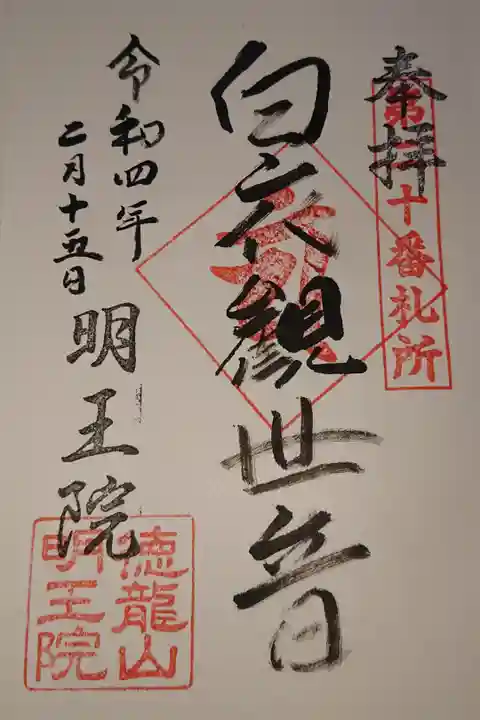 奉拝
第 十番札所
白衣観世音
令和四年
二月十五日
明王院
徳龍山
明王院